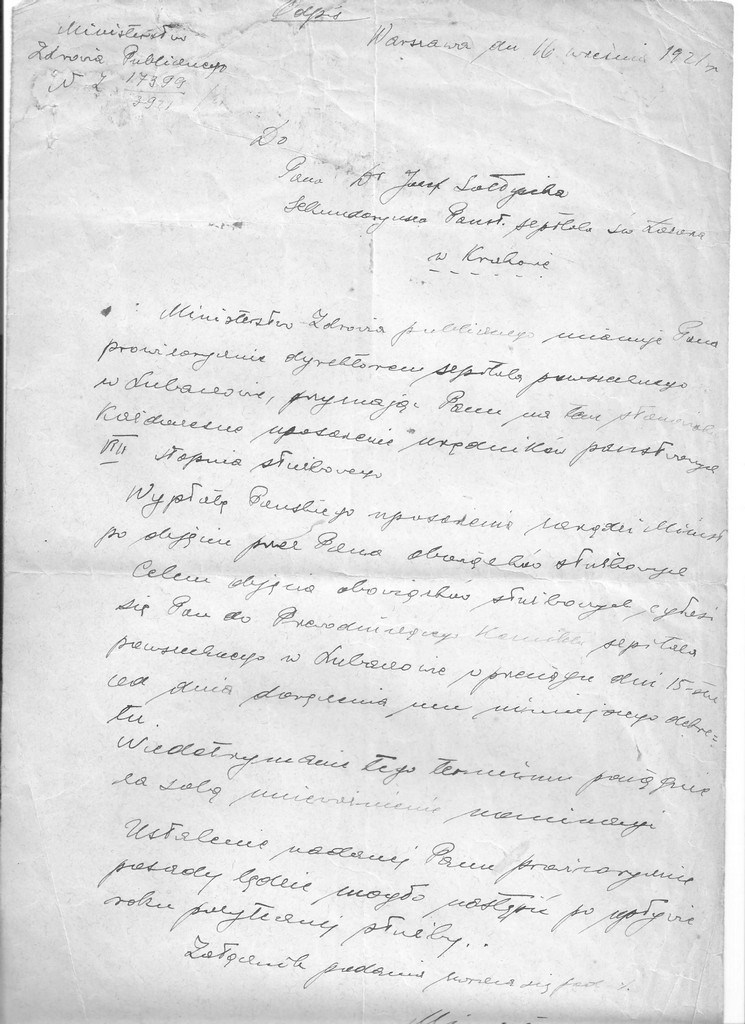 Odpis
Ministerstwo
Zdrowia Publicznego
N Z 17399
3921
Warszawa dn 16 września 1921 r
Do
Pana Dr Józef Sołtysika
Sekundaryusza Państ. szpitala św Łazarza
w Krakowie
Ministerstwo Zdrowia publicznego mianuje Pana
prowizorycznie dyrektorem szpitala powszechnego
w Lubaczowie, przyznając Panu na tem stanowisku
każdoczesne uposażenie urzędników państwowych
VII stopnia służbowego
Wypłatę Pańskiego uposażenia zarządzi Minist
po objęciu przez Pana obowiązków służbowych
Celem objęcia obowiązków służbowych zgłosi
się Pan do Przewodniczącego Komitetu szpitala
powszechnego w Lubaczowie w przeciągu dni 15-stu
od dnia doręczenia mu niniejszego dekre=
tu.
Niedotrzymanie tego terminu pociągnie
za sobą unieważnienie nominacyi
Ustalenie nadanej Panu prowizorycznie
posady będzie mogło nastąpić po upływie
roku pożytecznej służby..
Załącznik podania zwraca się